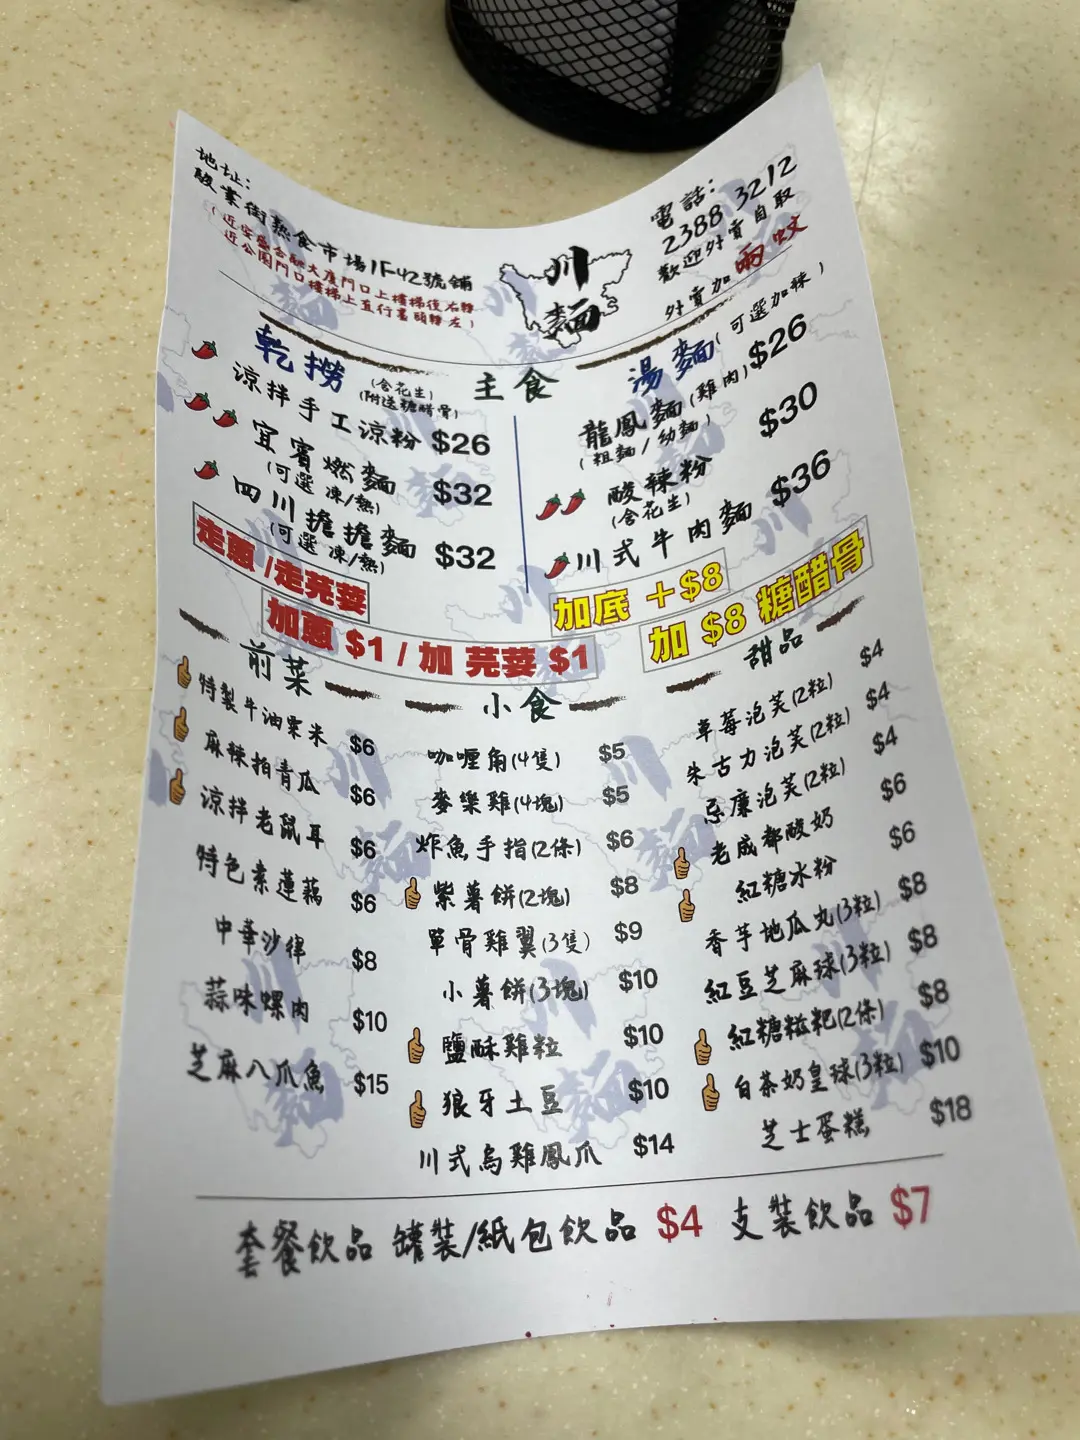 地址:
駿業街熟食市場1F42號舖
(近安盛金融大廈門口上樓梯後右轉
近公園門口樓梯上直行盡頭轉左)
川
麵
電話:
2388 3212
歡迎外賣自取
外賣加兩蚊
主食
乾撈 (含花生)
(附送糖醋骨)
涼拌手工涼粉 $26
宜賓燃麵 $32
(可選 凍/熱)
四川擔擔麵 $32
(可選 凍/熱)
湯麵(可選加辣)
龍鳳麵(雞肉) $26
(粗麵/幼麵)
酸辣粉 $30
(含花生)
川式牛肉麵 $36
走蔥/走芫荽
加蔥 $1 / 加 芫荽 $1
加底 +$8
加 $8 糖醋骨
前菜
特製牛油粟米 $6
麻辣拍青瓜 $6
涼拌老鼠耳 $6
特色素蓮藕 $6
中華沙律 $8
蒜味螺肉 $10
芝麻八爪魚 $15
小食
咖喱角(4隻) $5
麥樂雞(4塊) $5
炸魚手指(2條) $6
紫薯餅(2塊) $8
單骨雞翼(3隻) $9
小薯餅(3塊) $10
鹽酥雞粒 $10
狼牙土豆 $10
川式烏雞鳳爪 $14
甜品
草莓泡芙(2粒) $4
朱古力泡芙(2粒) $4
忌廉泡芙(2粒) $4
老成都酸奶 $6
紅糖冰粉 $6
香芋地瓜丸(3粒) $8
紅豆芝麻球(3粒) $8
紅糖糍粑(2條) $8
白茶奶皇球(3粒) $10
芝士蛋糕 $18
套餐飲品 罐裝/紙包飲品 $4 支裝飲品 $7